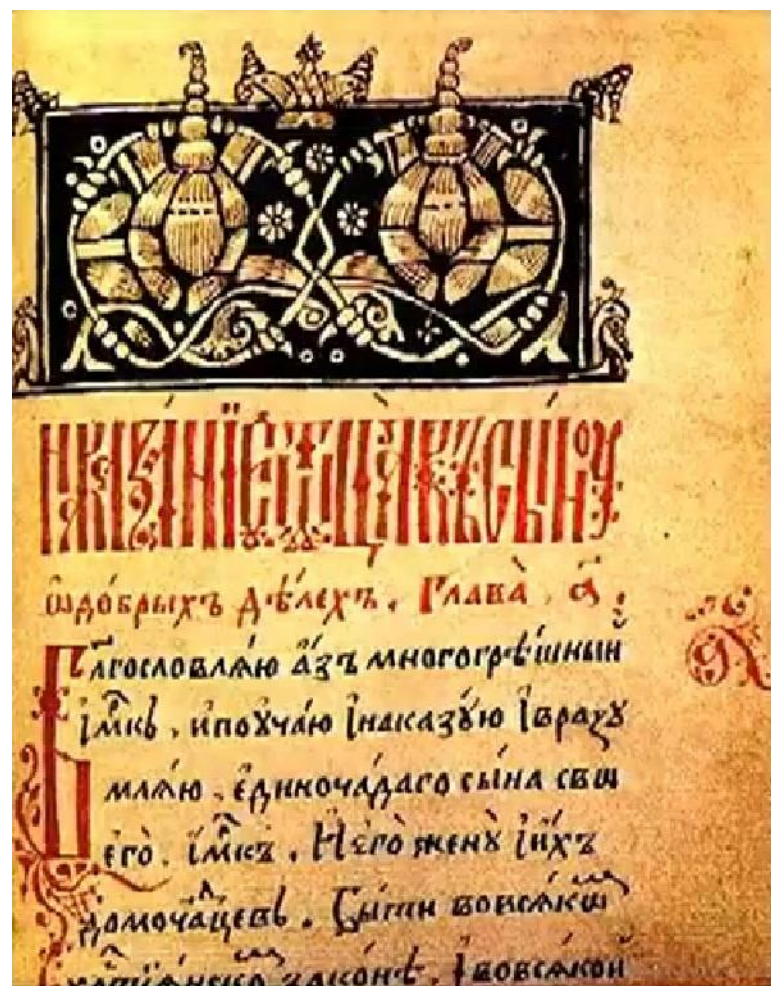 наказаніе ѿ отца къ сыну
ѡ добрыхъ дѣлехъ. Глава, а҃;
Бл҃гословлѧ́ю а́зъ многогрѣ́шныи
і҆м҃къ, и поучаю і наказу́ю і вразу
млѧ́ю. е҆диночадаго сы́на свѡ
его̀. і҆м҃къ. И его̀ жену̀ і и́хъ
домоча́дцевъ. Быти во всѧкѡ
хр҃тиѧнско зако́нѣ. І во всѧкои